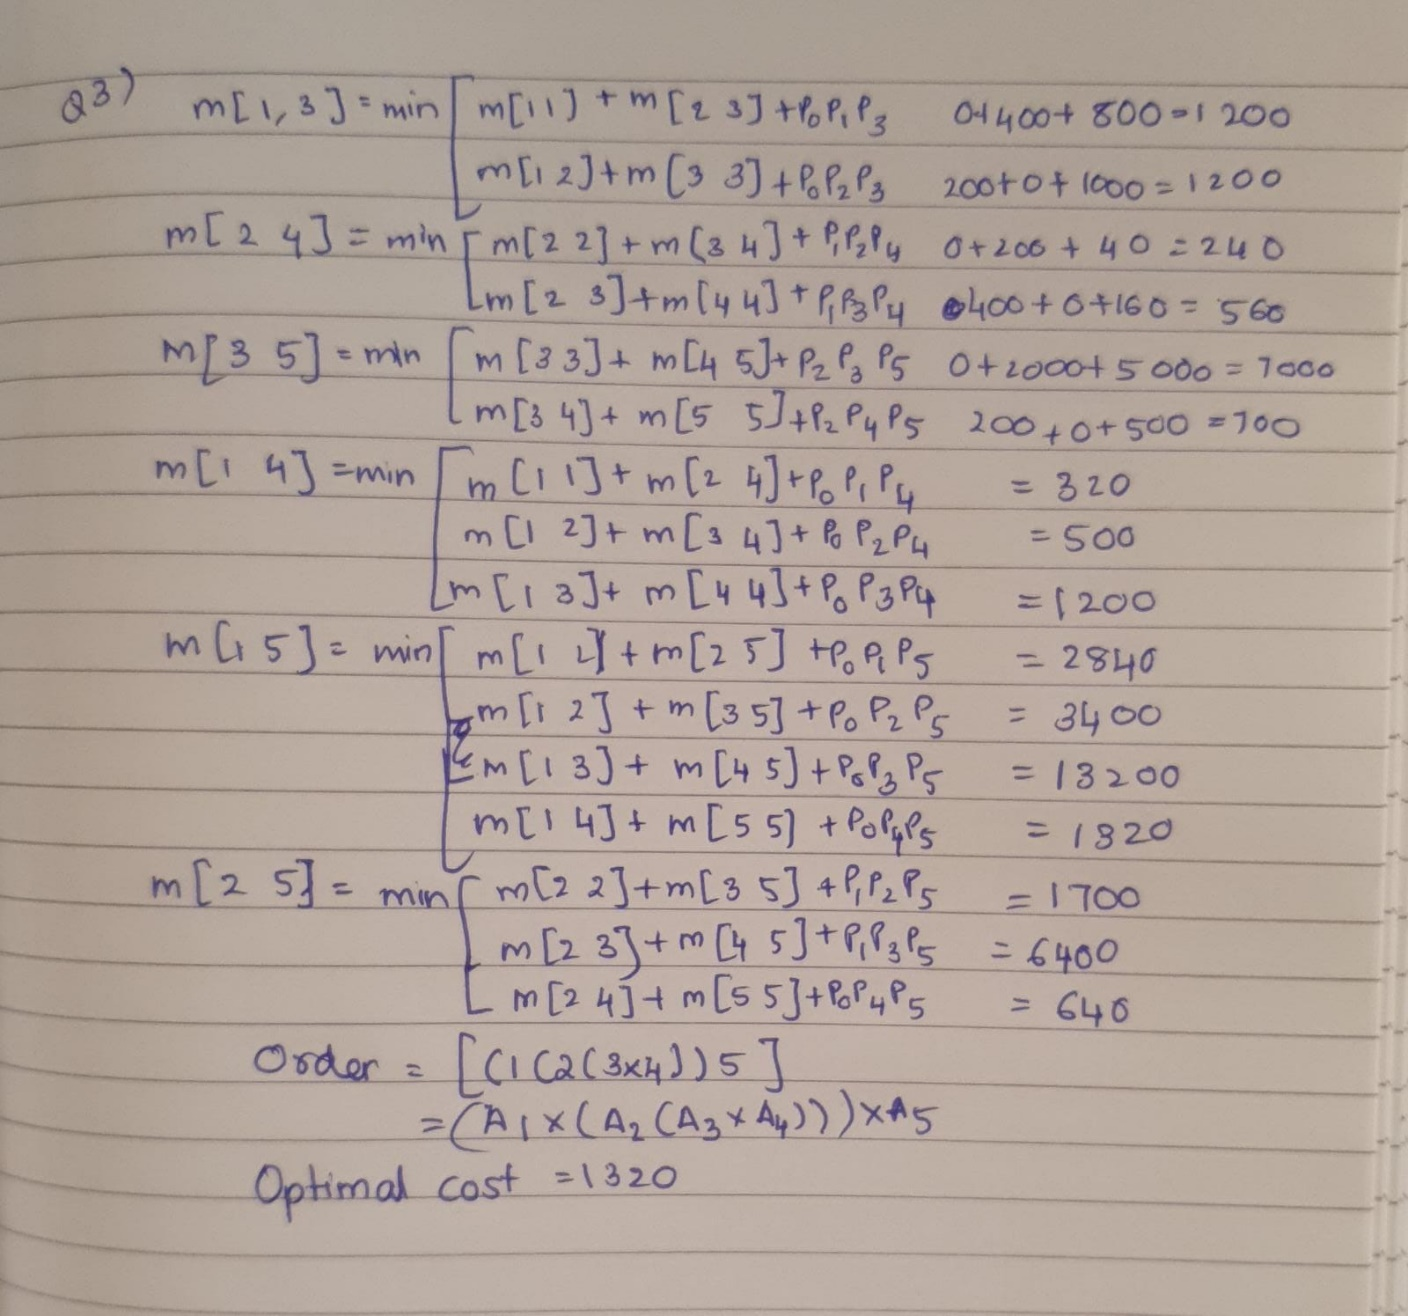 Q3) m[1,3] = min [ m[11] + m[2 3] + P0P1P3 0+400+800=1200
m[1 2]+m[3 3]+P0P2P3 200+0+1000=1200
m[2 4] = min [ m[2 2]+m[3 4]+P1P2P4 0+200+40=240
m[2 3]+m[4 4]+P1P3P4 400+0+160=560
m[3 5] = min [ m[33]+m[4 5]+P2P3P5 0+2000+5000=7000
m[3 4]+m[5 5]+P2P4P5 200+0+500=700
m[1 4] = min [ m[1 1]+m[2 4]+P0P1P4 = 320
m[1 2]+m[3 4]+P0P2P4 = 500
m[1 3]+m[4 4]+P0P3P4 = 1200
m[1 5] = min [ m[1 1]+m[2 5]+P0P1P5 = 2840
m[1 2]+m[3 5]+P0P2P5 = 3400
m[1 3]+m[4 5]+P0P3P5 = 13200
m[1 4]+m[5 5]+P0P4P5 = 1320
m[2 5] = min [ m[2 2]+m[3 5]+P1P2P5 = 1700
m[2 3]+m[4 5]+P1P3P5 = 6400
m[2 4]+m[5 5]+P0P4P5 = 640
Order = [(1(2(3x4))5]
= (A1x(A2(A3xA4)))xA5
Optimal cost =1320